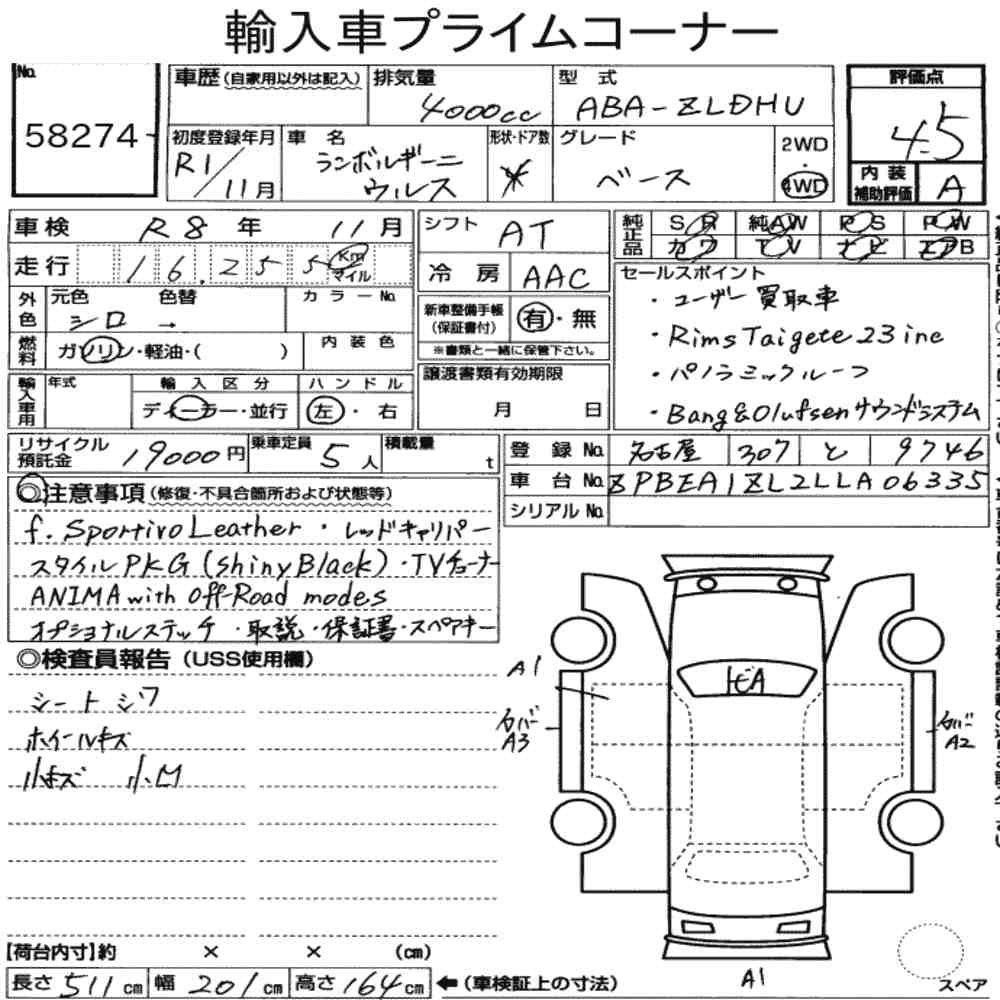 輸入車プライムコーナー
No. 58274
車歴(自家用以外は記入)
排気量 4000cc
型式 ABA-ZLDHU
評価点 4.5
初度登録年月 R1/11月
車名 ランボルギーニ ウルス
形状・ドア数
グレード ベース
2WD・4WD
内装補助評価 A
車検 R8年 11月
シフト AT
純正品 SR 純AW PS PW
カワ TV ナビ エアB
走行 16,255 Km マイル
冷房 AAC
セールスポイント
・ユーザー買取車
・Rims Taigete 23 inc
・パノラミックルーフ
・Bang&Olufsenサウンドシステム
外色 元色 シロ → 色替 カラーNo.
新車整備手帳(保証書付) 有・無
※書類と一緒に保管下さい。
燃料 ガソリン・軽油・( ) 内装色
輸入車用 年式 輸入区分 ディーラー・並行 ハンドル 左・右
譲渡書類有効期限 月 日
リサイクル預託金 19000円 乗車定員 5人 積載量 t
登録No. 名古屋 307 と 9746
車台No. ZPBEA1ZL2LLA06335
シリアルNo.
◎注意事項(修復・不具合箇所および状態等)
f. Sportivo Leather ・レッドキャリパー
スタイルPKG(Shiny Black)・TVチューナー
ANIMA with Off-Road modes
オプショナルステッチ ・取説・保証書・スペアキー
◎検査員報告(USS使用欄)
シートシワ
ホイールキズ
小キズ 小凹
A1
トビA
カバー A3
カバー A2
A1
スペア
【荷台内寸】約 × × (cm)
長さ 511cm 幅 201cm 高さ 164cm ←(車検証上の寸法)